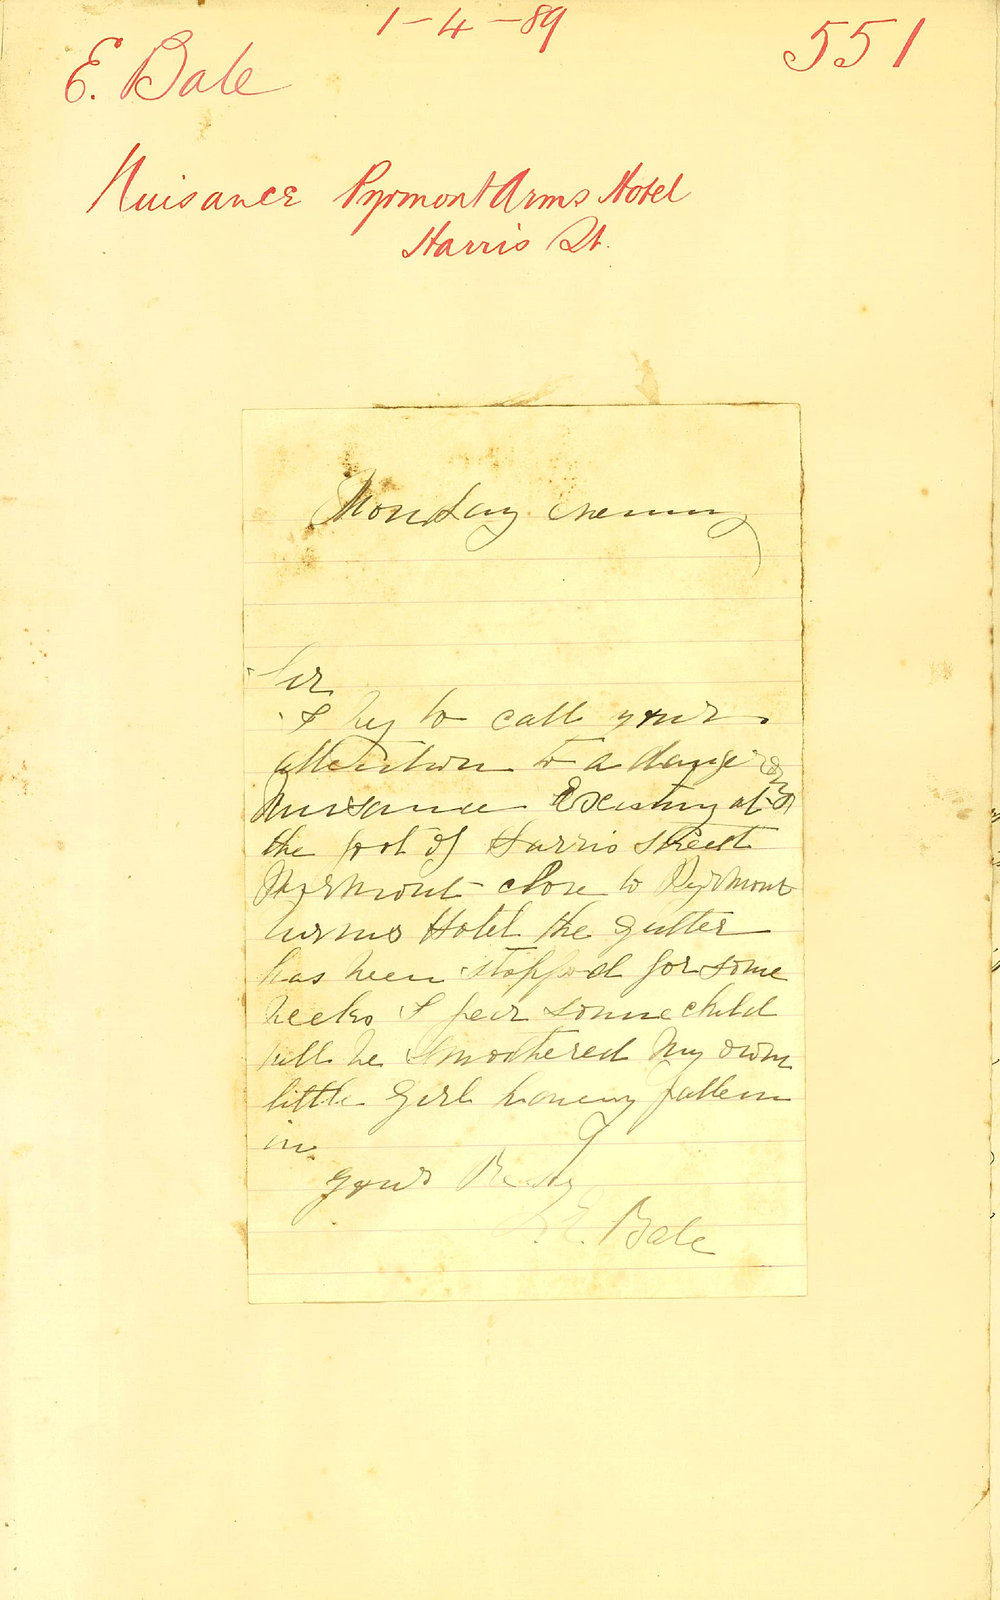 1-4-89
551
E. Bale
Nuisance Pyrmont Arms Hotel
Harris St.
Monday evening
Sir
I beg to call your
attention to a dangerous
Nuisance Existing at
the foot of Harris Street
Pyrmont close to Pyrmont
Arms Hotel the gutter
has been stopped for some
weeks I fear some child
will be Smothered My own
little Girl having fallen
in
yours
E. Bale